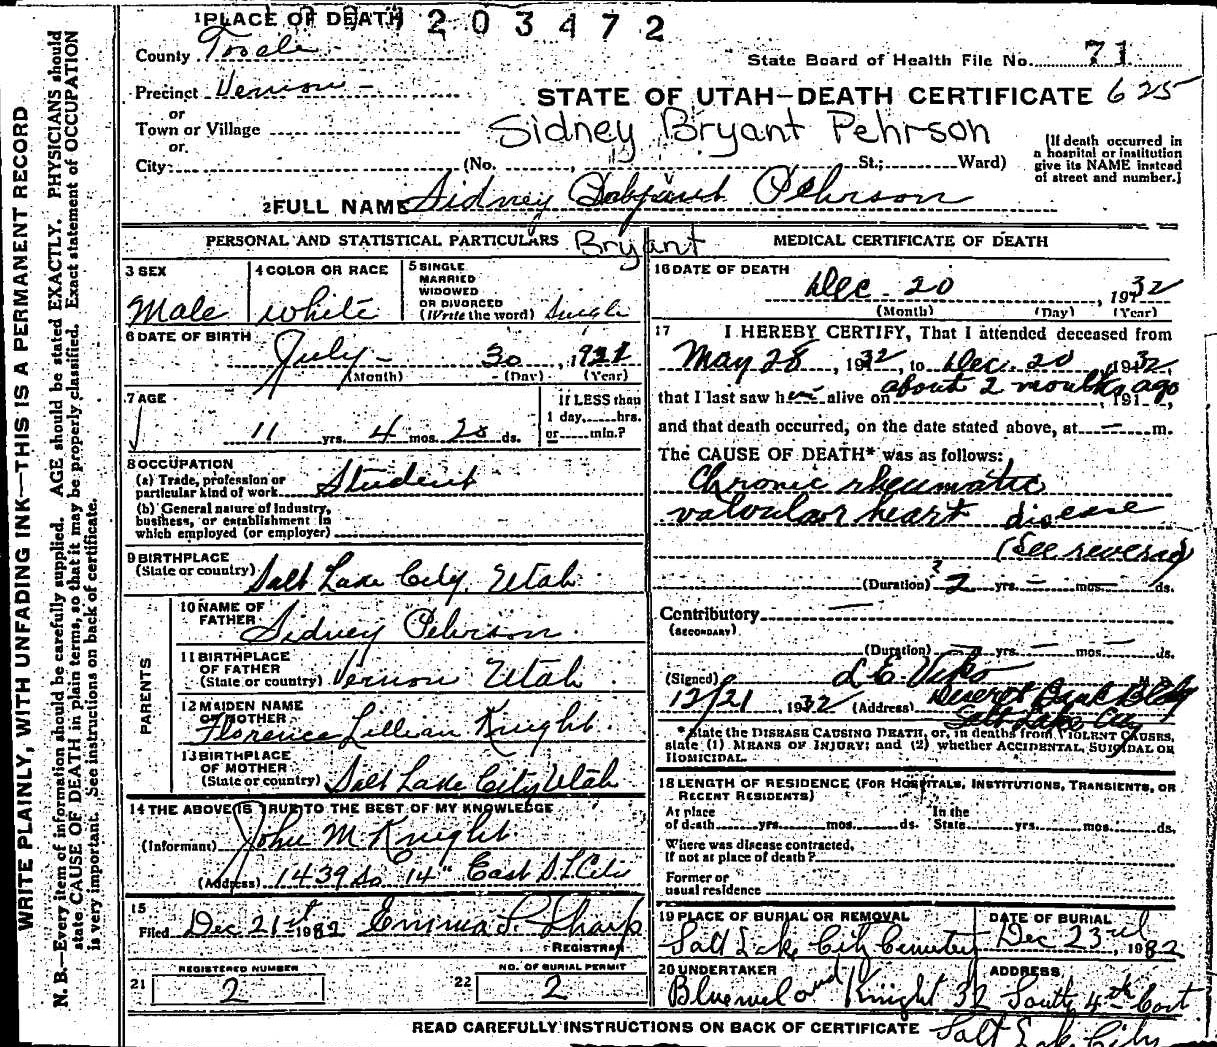 WRITE PLAINLY, WITH UNFADING INK—THIS IS A PERMANENT RECORD
N. B.—Every item of information should be carefully supplied. AGE should be stated EXACTLY. PHYSICIANS should
state CAUSE OF DEATH in plain terms, so that it may be properly classified. Exact statement of OCCUPATION
is very important. See instructions on back of certificate.
1 PLACE OF DEATH 203472
County Tooele
State Board of Health File No. 71
Precinct Vernon
STATE OF UTAH—DEATH CERTIFICATE 625
or
Town or Village
Sidney Bryant Pehrson
or
City: (No. , St.; Ward)
[If death occurred in
a hospital or institution
give its NAME instead
of street and number.]
2 FULL NAME Sidney Pehrson
Bryant
PERSONAL AND STATISTICAL PARTICULARS
3 SEX
Male
4 COLOR OR RACE
white
5 SINGLE
MARRIED
WIDOWED
OR DIVORCED
(Write the word) Single
6 DATE OF BIRTH
July - 30, 1921
(Month) (Day) (Year)
7 AGE
11 yrs. 4 mos. 20 ds.
If LESS than
1 day, hrs.
or min.?
8 OCCUPATION
(a) Trade, profession or
particular kind of work Student
(b) General nature of Industry,
business, or establishment in
which employed (or employer)
9 BIRTHPLACE
(State or country) Salt Lake City, Utah
PARENTS
10 NAME OF
FATHER Sidney Pehrson
11 BIRTHPLACE
OF FATHER
(State or country) Vernon Utah
12 MAIDEN NAME
OF MOTHER
Florence Lillian Knight
13 BIRTHPLACE
OF MOTHER
(State or country) Salt Lake City Utah
14 THE ABOVE IS TRUE TO THE BEST OF MY KNOWLEDGE
(Informant) John M Knight
(Address) 1439 So 14" East S.L. City
15
Filed Dec 21st 1932 Emma Sharp
REGISTRAR
REGISTERED NUMBER
21 2
NO. OF BURIAL PERMIT
22 2
MEDICAL CERTIFICATE OF DEATH
16 DATE OF DEATH
Dec - 20, 1932
(Month) (Day) (Year)
17 I HEREBY CERTIFY, That I attended deceased from
May 28, 1932, to Dec. 20, 1932,
that I last saw him alive on about 2 months ago, 191 ,
and that death occurred, on the date stated above, at — m.
The CAUSE OF DEATH* was as follows:
Chronic rheumatic
valvular heart disease
(See reverse)
(Duration) 2 yrs. — mos. — ds.
Contributory —
(SECONDARY)
(Duration) — yrs. — mos. — ds.
(Signed) L E Viko M. D.
12/21, 1932 (Address) Deseret Bank Bldg
Salt Lake City
*State the DISEASE CAUSING DEATH, or, in deaths from VIOLENT CAUSES,
state (1) MEANS OF INJURY; and (2) whether ACCIDENTAL, SUICIDAL OR
HOMICIDAL.
18 LENGTH OF RESIDENCE (FOR HOSPITALS, INSTITUTIONS, TRANSIENTS, OR
RECENT RESIDENTS)
At place
of death yrs. mos. ds.
In the
State yrs. mos. ds.
Where was disease contracted,
If not at place of death?
Former or
usual residence
19 PLACE OF BURIAL OR REMOVAL
Salt Lake City Cemetery
DATE OF BURIAL
Dec 23rd, 1932
20 UNDERTAKER
and Knight
ADDRESS
32 South 4th East
Salt Lake City
READ CAREFULLY INSTRUCTIONS ON BACK OF CERTIFICATE